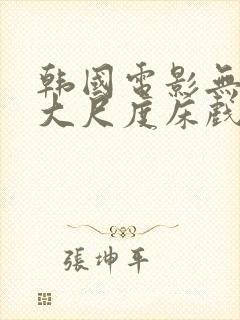 韩國電影無
大尺度床戲
張坤平